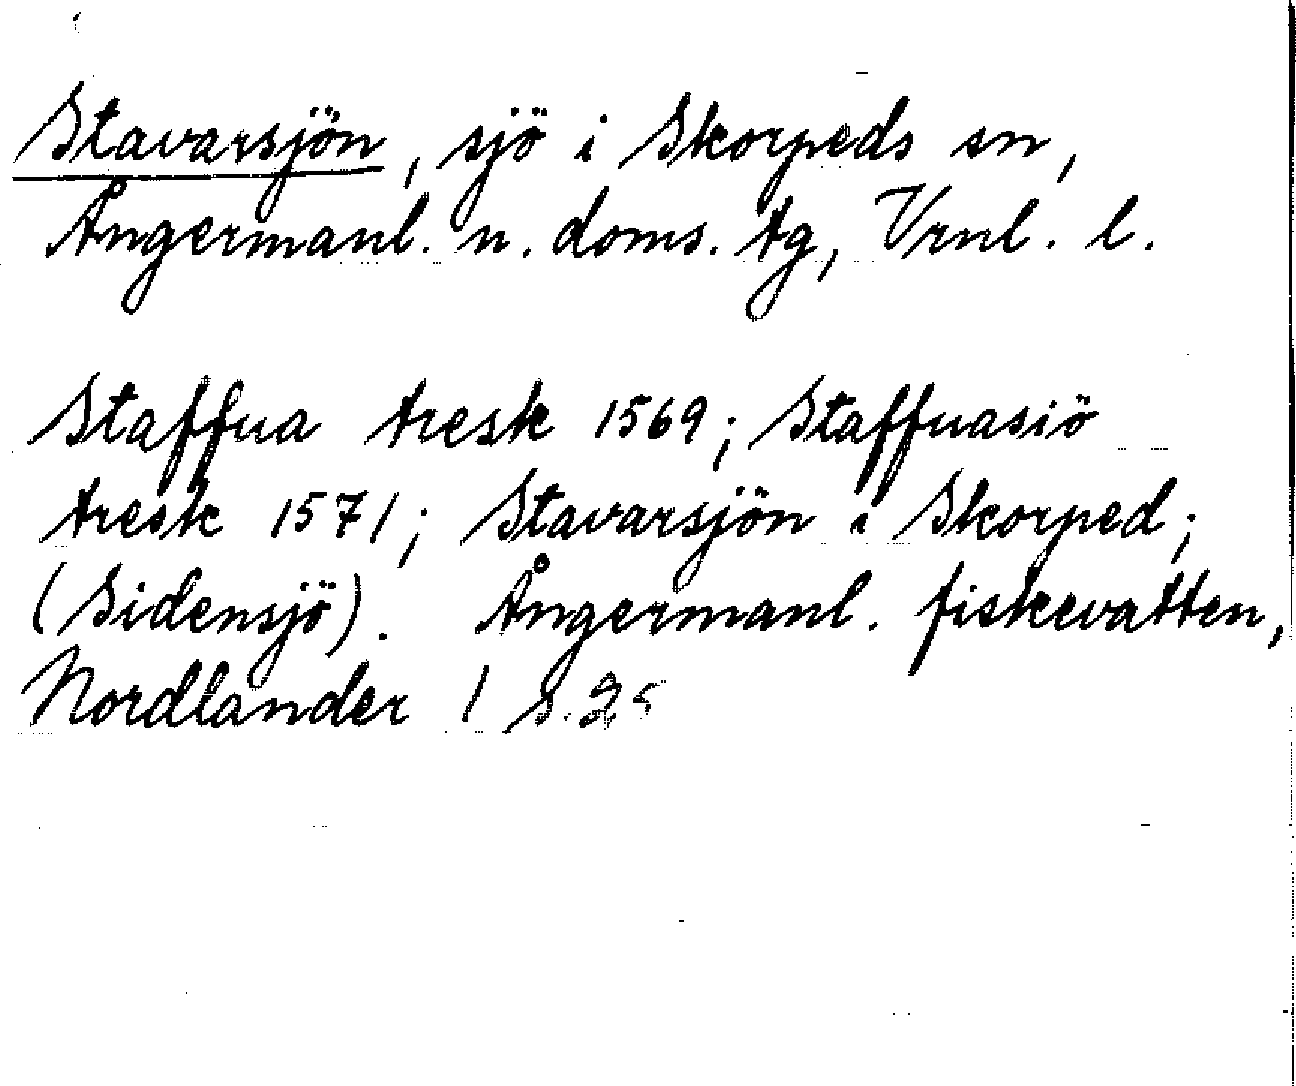 Stavarsjön, sjö i Skorpeds sn,
Ångermanl. n. doms. tg, Vrnl. l.
Staffua tresk 1569; Staffuasiö
tresk 1571; Stavarsjön i Skorped;
(Sidensjö). Ångermanl. fiskevatten,
Nordlander 1 S. 25